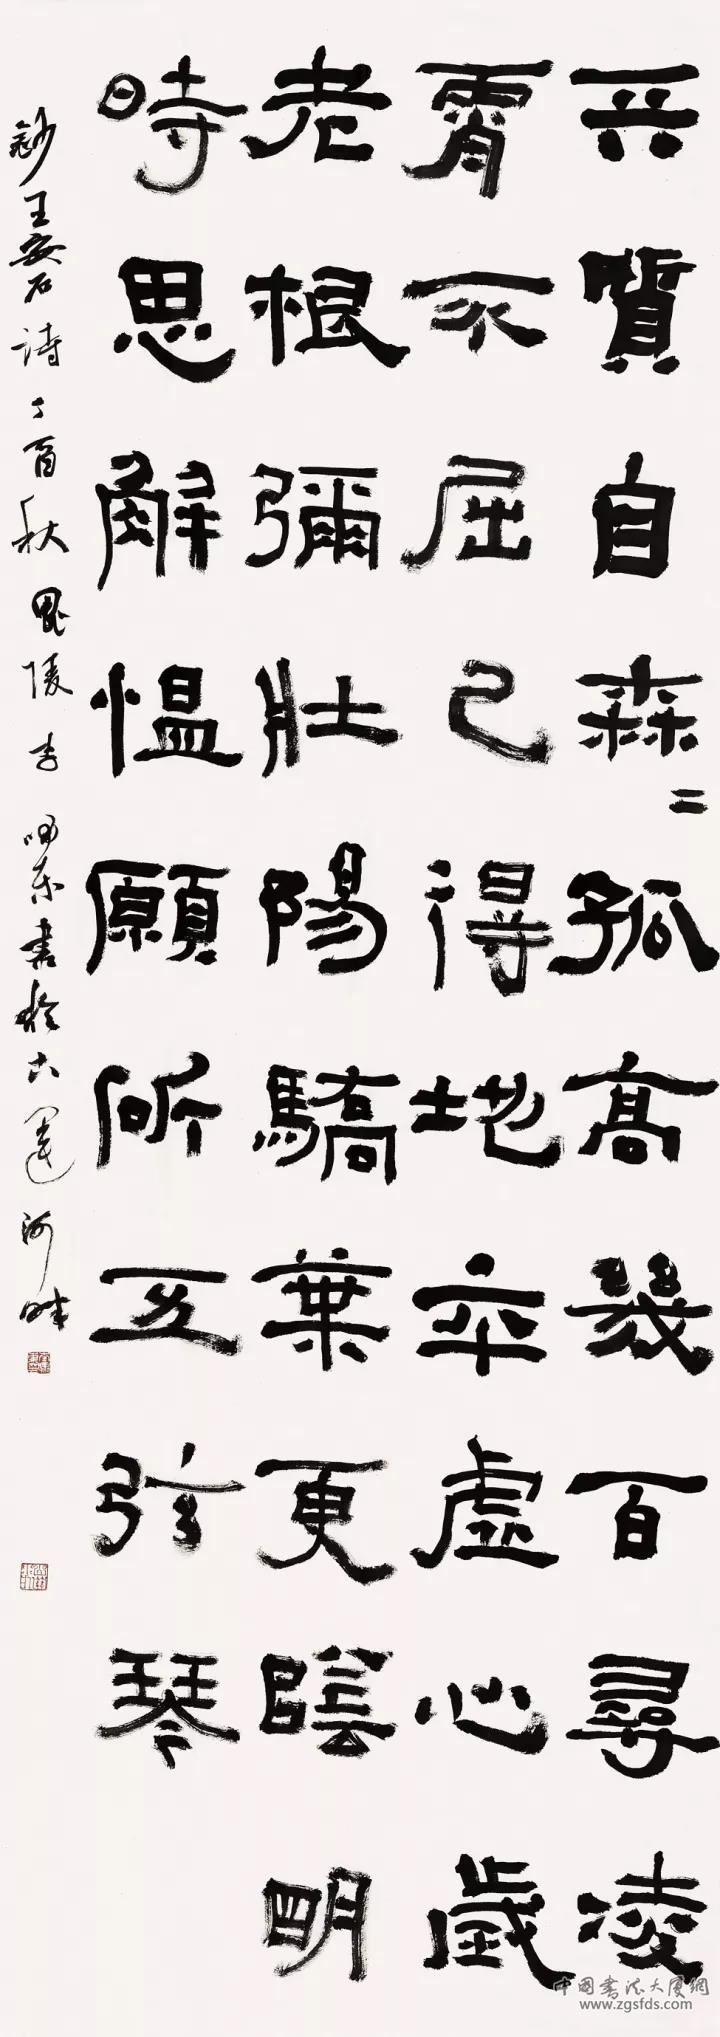 天質自森〻孤高幾百尋凌
霄不屈己得地夲虛心歲
老根彌壯陽驕葉更陰明
時思解慍願斫五弦琴
鈔王安石詩丁酉秋毘陵李東書於古運河畔
中國書法大廈網
www.zgsfds.com